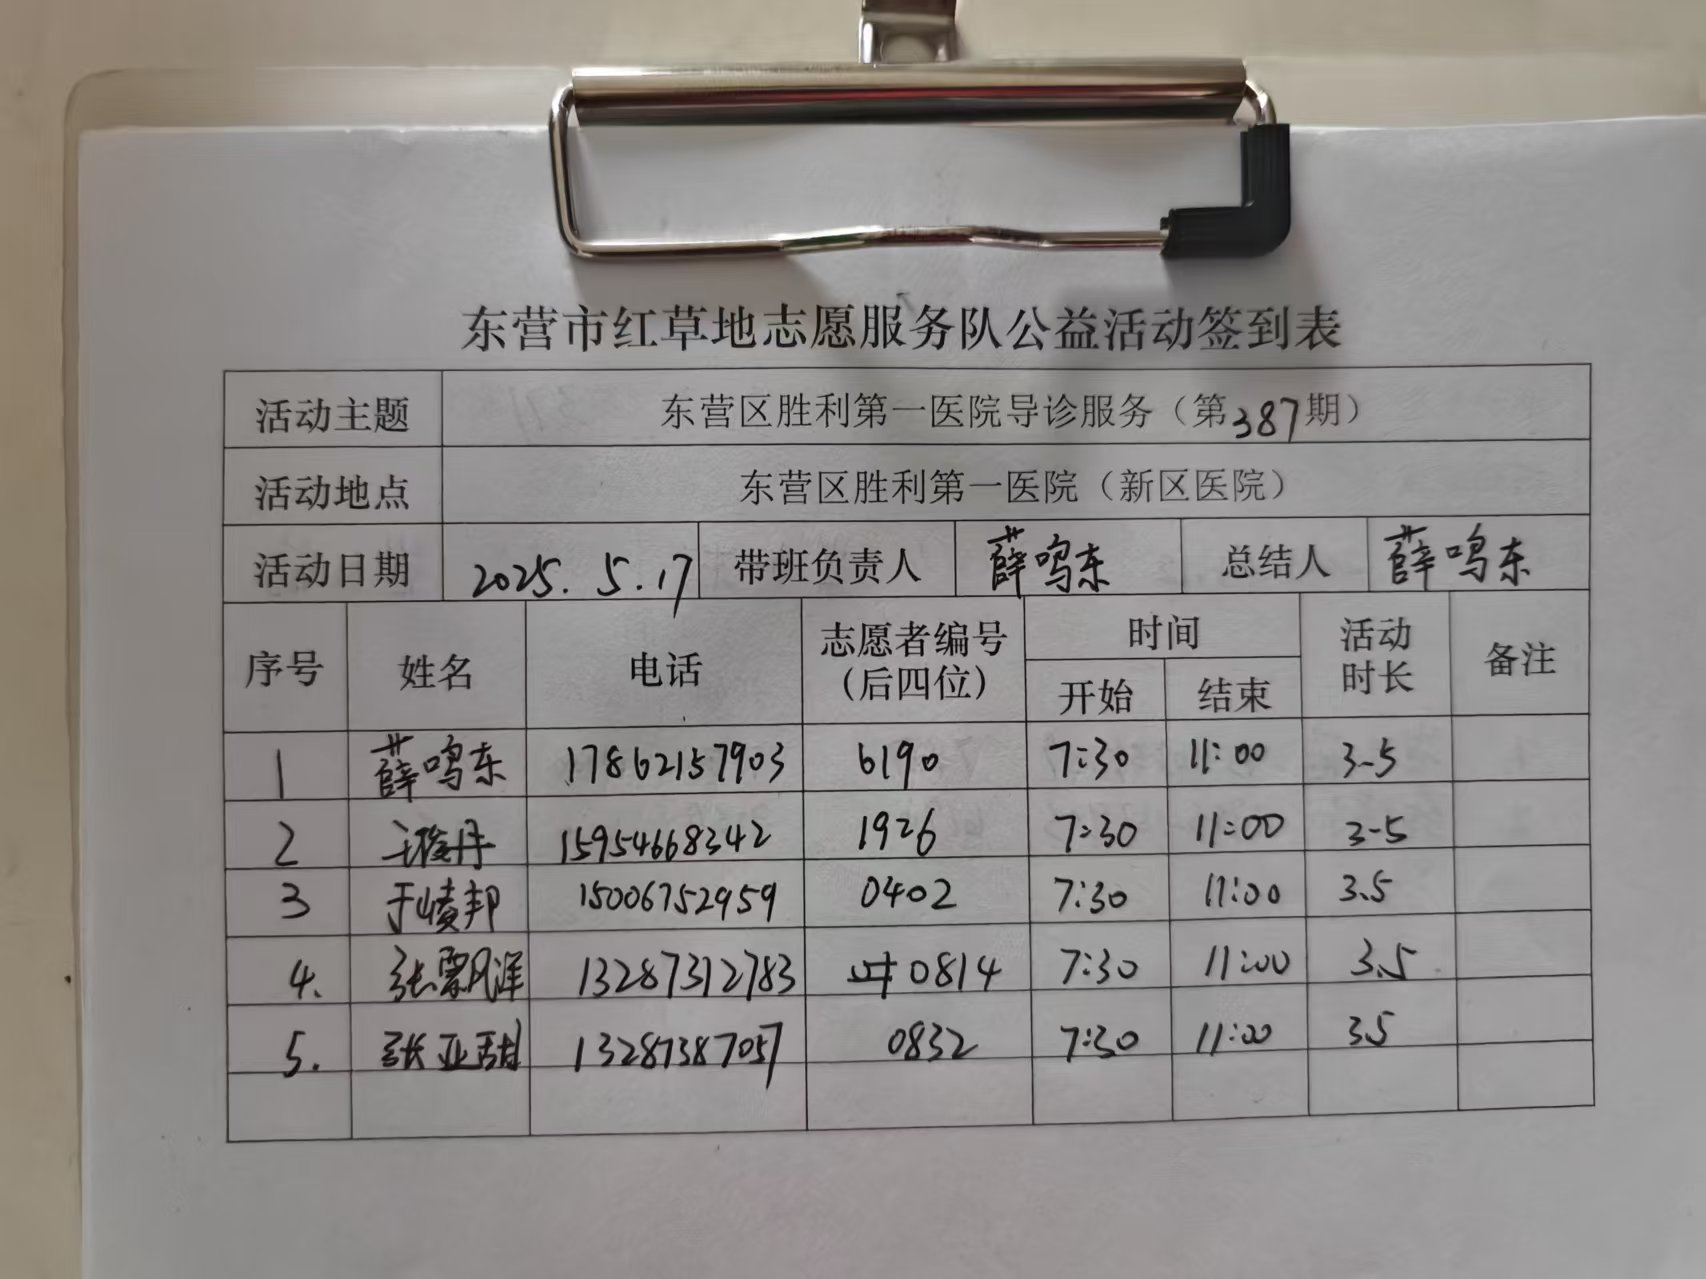 东营市红草地志愿服务队公益活动签到表
活动主题 东营区胜利第一医院导诊服务（第387期）
活动地点 东营区胜利第一医院（新区医院）
活动日期 2025.5.17 带班负责人 薛鸣东 总结人 薛鸣东
序号 姓名 电话 志愿者编号（后四位） 时间 开始 结束 活动时长 备注
1 薛鸣东 17862157903 6190 7:30 11:00 3.5
2 15954668342 1926 7:30 11:00 3.5
3 于崚邦 15006752959 0402 7:30 11:00 3.5
4. 张飘洋 13287312783 0814 7:30 11:00 3.5
5. 张亚甜 13287387057 0832 7:30 11:00 3.5